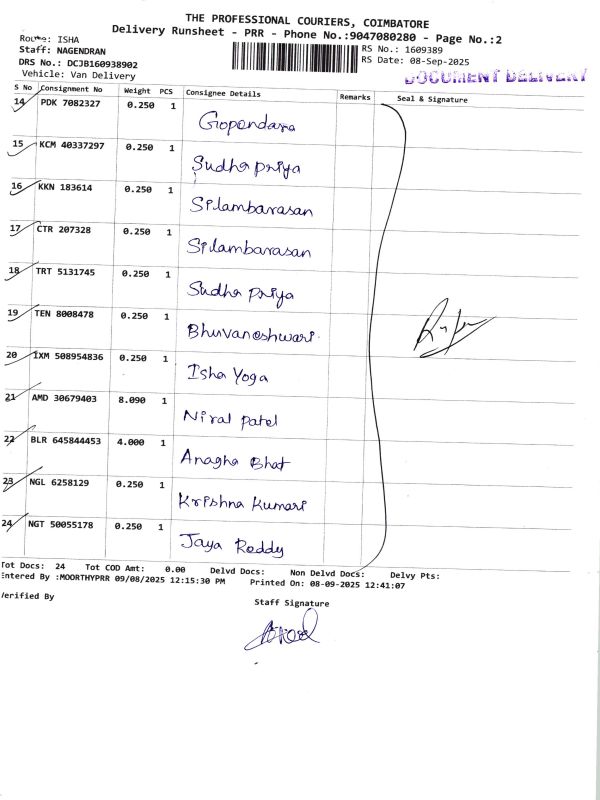 THE PROFESSIONAL COURIERS, COIMBATORE
Delivery Runsheet - PRR - Phone No.:9047080280 - Page No.:2
Route: ISHA
Staff: NAGENDRAN
RS No.: 1609389
DRS No.: DCJB160938902
RS Date: 08-Sep-2025
Vehicle: Van Delivery
DOCUMENT DELIVERY
S No Consignment No Weight PCS Consignee Details Remarks Seal & Signature
14 PDK 7082327 0.250 1 Gopendara
15 KCM 40337297 0.250 1 Sudha priya
16 KKN 183614 0.250 1 Silambarasan
17 CTR 207328 0.250 1 Silambarasan
18 TRT 5131745 0.250 1 Sudha priya
19 TEN 8008478 0.250 1 Bhuvaneshwari
20 IXM 508954836 0.250 1 Isha Yoga
21 AMD 30679403 8.090 1 Niral patel
22 BLR 645844453 4.000 1 Anagha Bhat
23 NGL 6258129 0.250 1 Krishna Kumari
24 NGT 50055178 0.250 1 Jaya Reddy
Tot Docs: 24 Tot COD Amt: 0.00 Delvd Docs: Non Delvd Docs: Delvy Pts:
Entered By :MOORTHYPRR 09/08/2025 12:15:30 PM Printed On: 08-09-2025 12:41:07
Verified By
Staff Signature